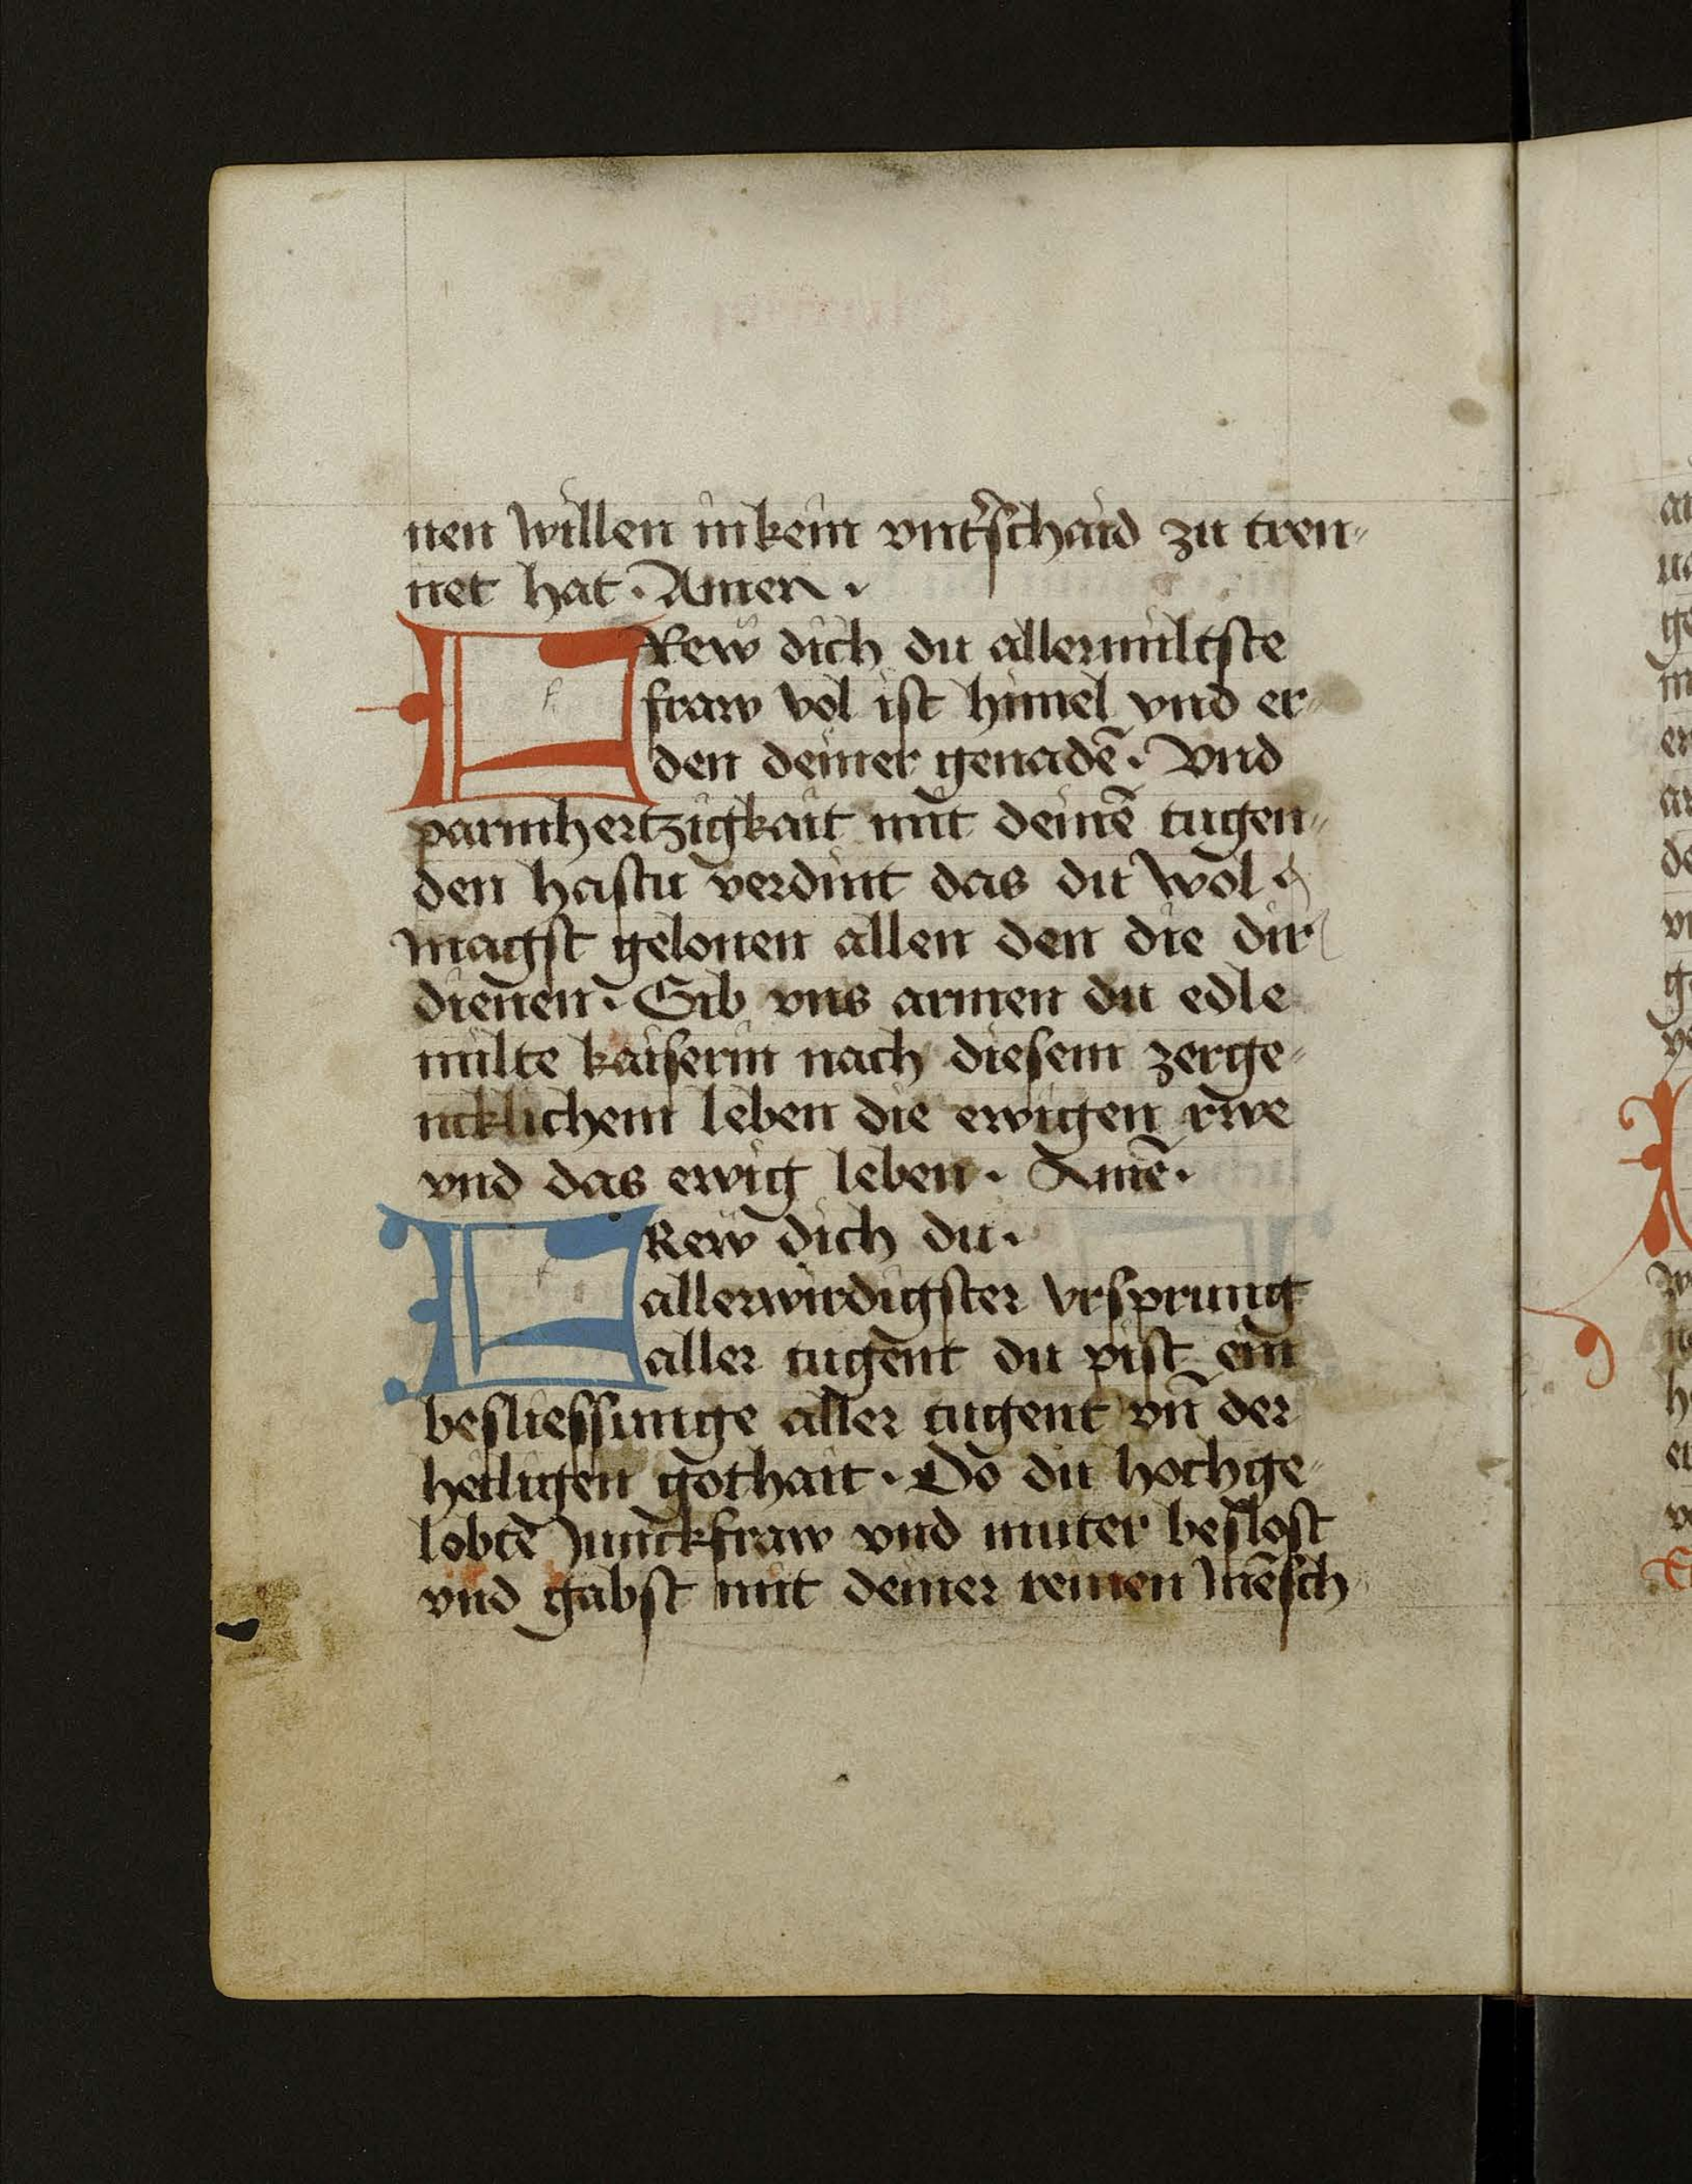 nen willen inkein vnt̃schaid zu tren⸗
net hat · Amen ·
FRew dich du allermiltste
fraw vol ist himel vnd er⸗
den deiner genadẽ · Vnd
parmhertzigkait mit deinẽ tugen⸗
den hastu verdint das du wol
magst gelonen allen den die dir
dienen · Gib vns armen du edle
milte kaiserin nach diesem zerge⸗
ncklichem leben die ewigen rwe
vnd das ewig leben · Amẽ ·
FRew dich du ·
allerwirdigster vrsprung
aller tugent du pist ein
besliessunge aller tugent vñ der
heiligen gothait · Do du hochge⸗
lobtẽ Junckfraw vnd muter beslost
vnd gabst mit deiner reinen mẽsch